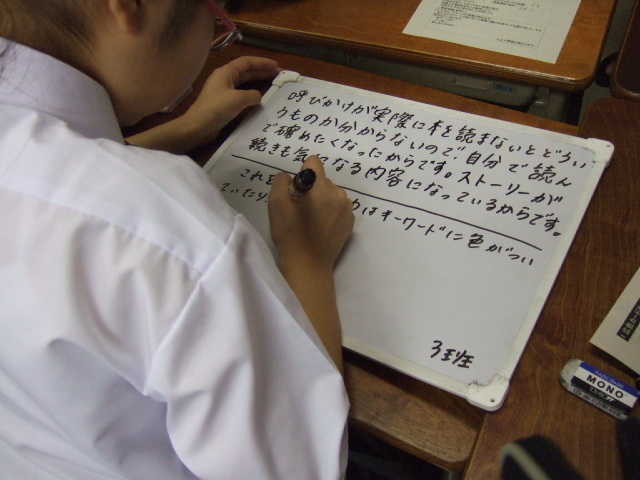 呼びかけが実際に本を読まないとどうい
うものか分からないので、自分で読ん
で確めたくなったからです。ストーリーが
続きも気になる内容になっているからです。
これを
はキーワードに色がつい
ていたり
3班
MONO